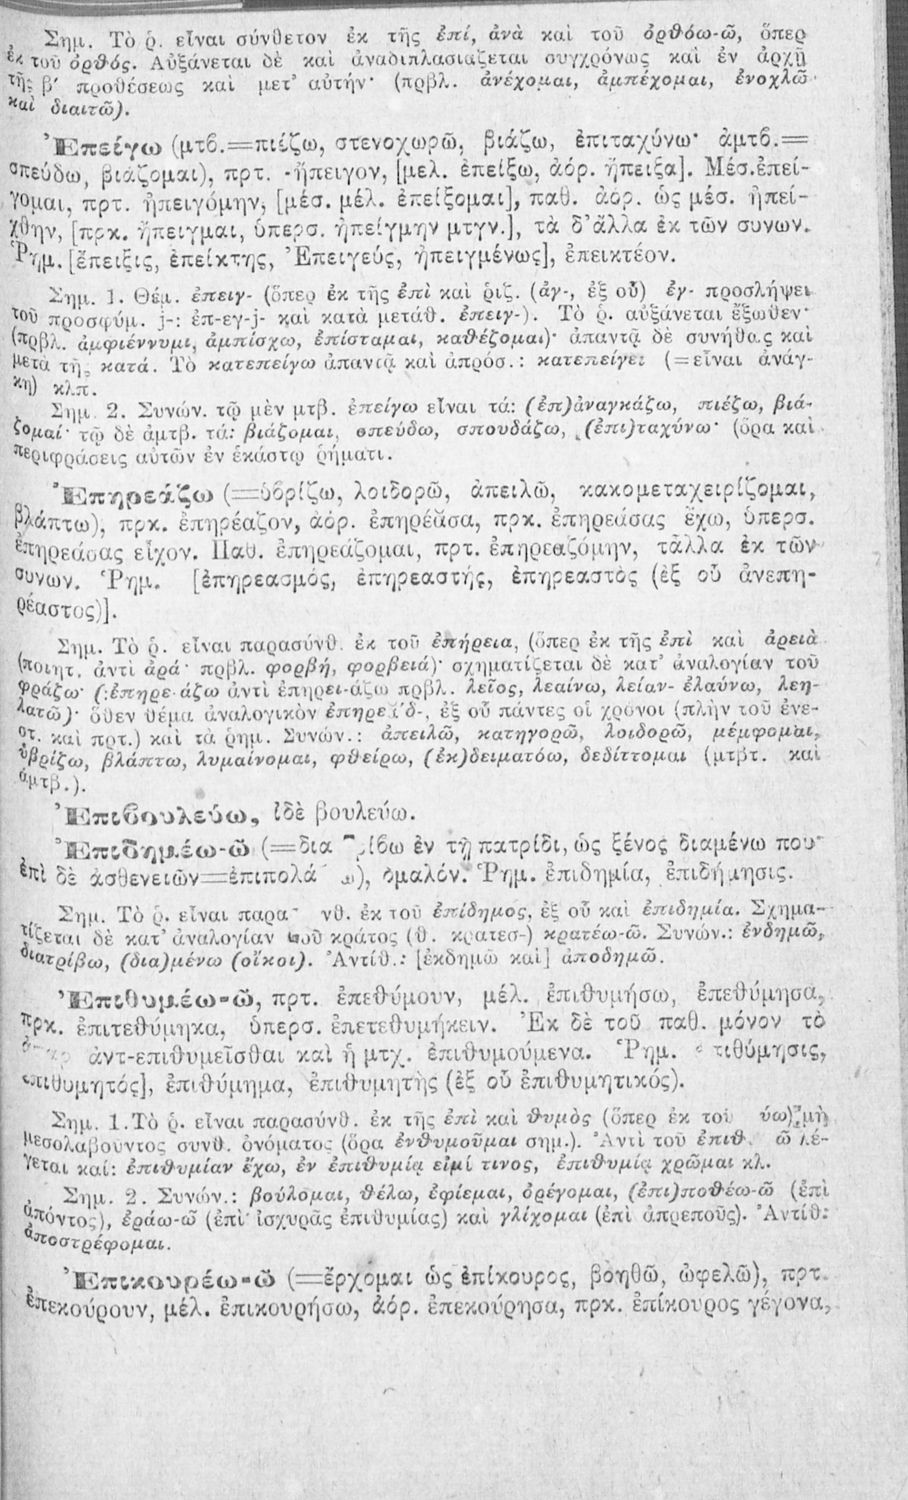 Σημ. Τὸ ῥ. εἶναι σύνθετον ἐκ τῆς ἐπί, ἀνὰ καὶ τοῦ ὀρθόω-ῶ, ὅπερ
ἐκ τοῦ ὀρθός. Αὐξάνεται δὲ καὶ ἀναδιπλασιάζεται συγχρόνως καὶ ἐν ἀρχῇ
τῆς β′ προθέσεως καὶ μετ' αὐτήν· (πρβλ. ἀνέχομαι, ἀμπέχομαι, ἐνοχλῶ
καὶ διαιτῶ).
Ἐπείγω (μτβ.=πιέζω, στενοχωρῶ, βιάζω, ἐπιταχύνω· ἀμτβ.=
σπεύδω, βιάζομαι), πρτ. ἤπειγον, [μελ. ἐπείξω, ἀόρ. ἤπειξα]. Μέσ.ἐπεί-
γομαι, πρτ. ἠπειγόμην, [μέσ. μέλ. ἐπείξομαι], παθ. ἀόρ. ὡς μέσ. ἠπεί-
χθην, [πρκ. ἤπειγμαι, ὑπερσ. ἠπείγμην μτγν.], τὰ δ'ἄλλα ἐκ τῶν συνων.
Ῥημ. [ἔπειξις, ἐπείκτης, Ἐπειγεύς, ἠπειγμένως], ἐπεικτέον.
Σημ. 1. Θέμ. ἐπειγ- (ὅπερ ἐκ τῆς ἐπὶ καὶ ῥιζ. (ἀγ-, ἐξ οὗ) ἐγ- προσλήψει
τοῦ προσφύμ. j-: ἐπ-εγ-j- καὶ κατὰ μετάθ. ἐπειγ-). Τὸ ῥ. αὐξάνεται ἔξωθεν·
(πρβλ. ἀμφιέννυμι, ἀμπίσχω, ἐπίσταμαι, καθέζομαι)· ἀπαντᾷ δὲ συνήθως καὶ
μετὰ τῆς κατά. Τὸ κατεπείγω ἀπαντᾷ καὶ ἀπρόσ.: κατεπείγει (=εἶναι ἀνάγ-
κη) κλπ.
Σημ. 2. Συνών. τῷ μὲν μτβ. ἐπείγω εἶναι τά: (ἐπ)αναγκάζω, πιέζω, βιά-
ζομαί· τῷ δὲ ἀμτβ. τά: βιάζομαι, σπεύδω, σπουδάζω, (ἐπι)ταχύνω· (ὅρα καὶ
περιφράσεις αὐτῶν ἐν ἑκάστῳ ῥήματι.
Ἐπηρεάζω (=ὑβρίζω, λοιδορῶ, ἀπειλῶ, κακομεταχειρίζομαι,
βλάπτω), πρκ. ἐπηρέαζον, ἀόρ. ἐπηρέᾱσα, πρκ. ἐπηρεάσας ἔχω, ὑπερσ.
ἐπηρεάσας εἶχον. Παθ. ἐπηρεάζομαι, πρτ. ἐπηρεαζόμην, τἆλλα ἐκ τῶν
συνων. Ῥημ. [ἐπηρεασμός, ἐπηρεαστής, ἐπηρεαστὸς (ἐξ οὗ ἀνεπη-
ρέαστος)].
Σημ. Τὸ ῥ. εἶναι παρασύνθ. ἐκ τοῦ ἐπήρεια, (ὅπερ ἐκ τῆς ἐπὶ καὶ ἀρειὰ
(ποιητ. ἀντὶ ἀρά· πρβλ. φορβή, φορβειά)· σχηματίζεται δὲ κατ' ἀναλογίαν τοῦ
φράζω· (:ἐπηρε-άζω ἀντὶ ἐπηρει-άζω πρβλ. λεῖος, λεαίνω, λείαν- ἐλαύνω, λεη-
λατῶ)· ὅθεν θέμα ἀναλογικὸν ἐπηρεάδ-, ἐξ οὗ πάντες οἱ χρόνοι (πλὴν τοῦ ἐνε-
στ. καὶ πρτ.) καὶ τὰ ῥημ. Συνών.: ἀπειλῶ, κατηγορῶ, λοιδορῶ, μέμφομαι,
ὑβρίζω, βλάπτω, λυμαίνομαι, φθείρω, (ἐκ)δειματόω, δεδίττομαι (μτβτ. καὶ
ἀμτβ.).
Ἐπιβουλεύω, ἰδὲ βουλεύω.
Ἐπιδημέω-ῶ (=δια ρίβω ἐν τῇ πατρίδι, ὡς ξένος διαμένω που·
ἐπὶ δὲ ἀσθενειῶν=ἐπιπολά ω), ὁμαλόν. Ῥημ. ἐπιδημία, ἐπιδήμησις.
Σημ. Τὸ ῥ. εἶναι παρα νθ. ἐκ τοῦ ἐπίδημος, ἐξ οὗ καὶ ἐπιδημία. Σχημα-
τίζεται δὲ κατ' ἀναλογίαν τοῦ κράτος (θ. κρατεσ-) κρατέω-ῶ. Συνών.: ἐνδημῶ,
διατρίβω, (δια)μένω (οἴκοι). Ἀντίθ.: [ἐκδημῶ καὶ] ἀποδημῶ.
Ἐπιθυμέω-ῶ, πρτ. ἐπεθύμουν, μέλ. ἐπιθυμήσω, ἐπεθύμησα,
πρκ. ἐπιτεθύμηκα, ὑπερσ. ἐπετεθυμήκειν. Ἐκ δὲ τοῦ παθ. μόνον τὸ
ἀντ-επιθυμεῖσθαι καὶ ἡ μτχ. ἐπιθυμούμενα. Ῥημ. τιθύμησις,
πιθυμητός], ἐπιθύμημα, ἐπιθυμητὴς (ἐξ οὗ ἐπιθυμητικός).
Σημ. 1.Τὸ ῥ. εἶναι παρασύνθ. ἐκ τῆς ἐπὶ καὶ θυμὸς (ὅπερ ἐκ τοῦ ύω) μὴ
μεσολαβοῦντος συνθ. ὀνόματος (ὅρα ἐνθυμοῦμαι σημ.). Ἀντὶ τοῦ ἐπιθ ῶ λέ-
γεται καί: ἐπιθυμίαν ἔχω, ἐν ἐπιθυμίᾳ εἰμί τινος, ἐπιθυμίᾳ χρῶμαι κλ.
Σημ. 2. Συνών.: βούλομαι, θέλω, ἐφίεμαι, ὀρέγομαι, (ἐπι)ποθέω-ῶ (ἐπὶ
ἀπόντος), ἐράω-ῶ (ἐπὶ ἰσχυρᾶς ἐπιθυμίας) καὶ γλίχομαι (ἐπὶ ἀπρεποῦς). Ἀντίθ:
ἀποστρέφομαι.
Ἐπικουρέω-ῶ (=ἔρχομαι ὡς ἐπίκουρος, βοηθῶ, ὠφελῶ), πρτ.
ἐπεκούρουν, μέλ. ἐπικουρήσω, ἀόρ. ἐπεκούρησα, πρκ. ἐπίκουρος γέγονα,